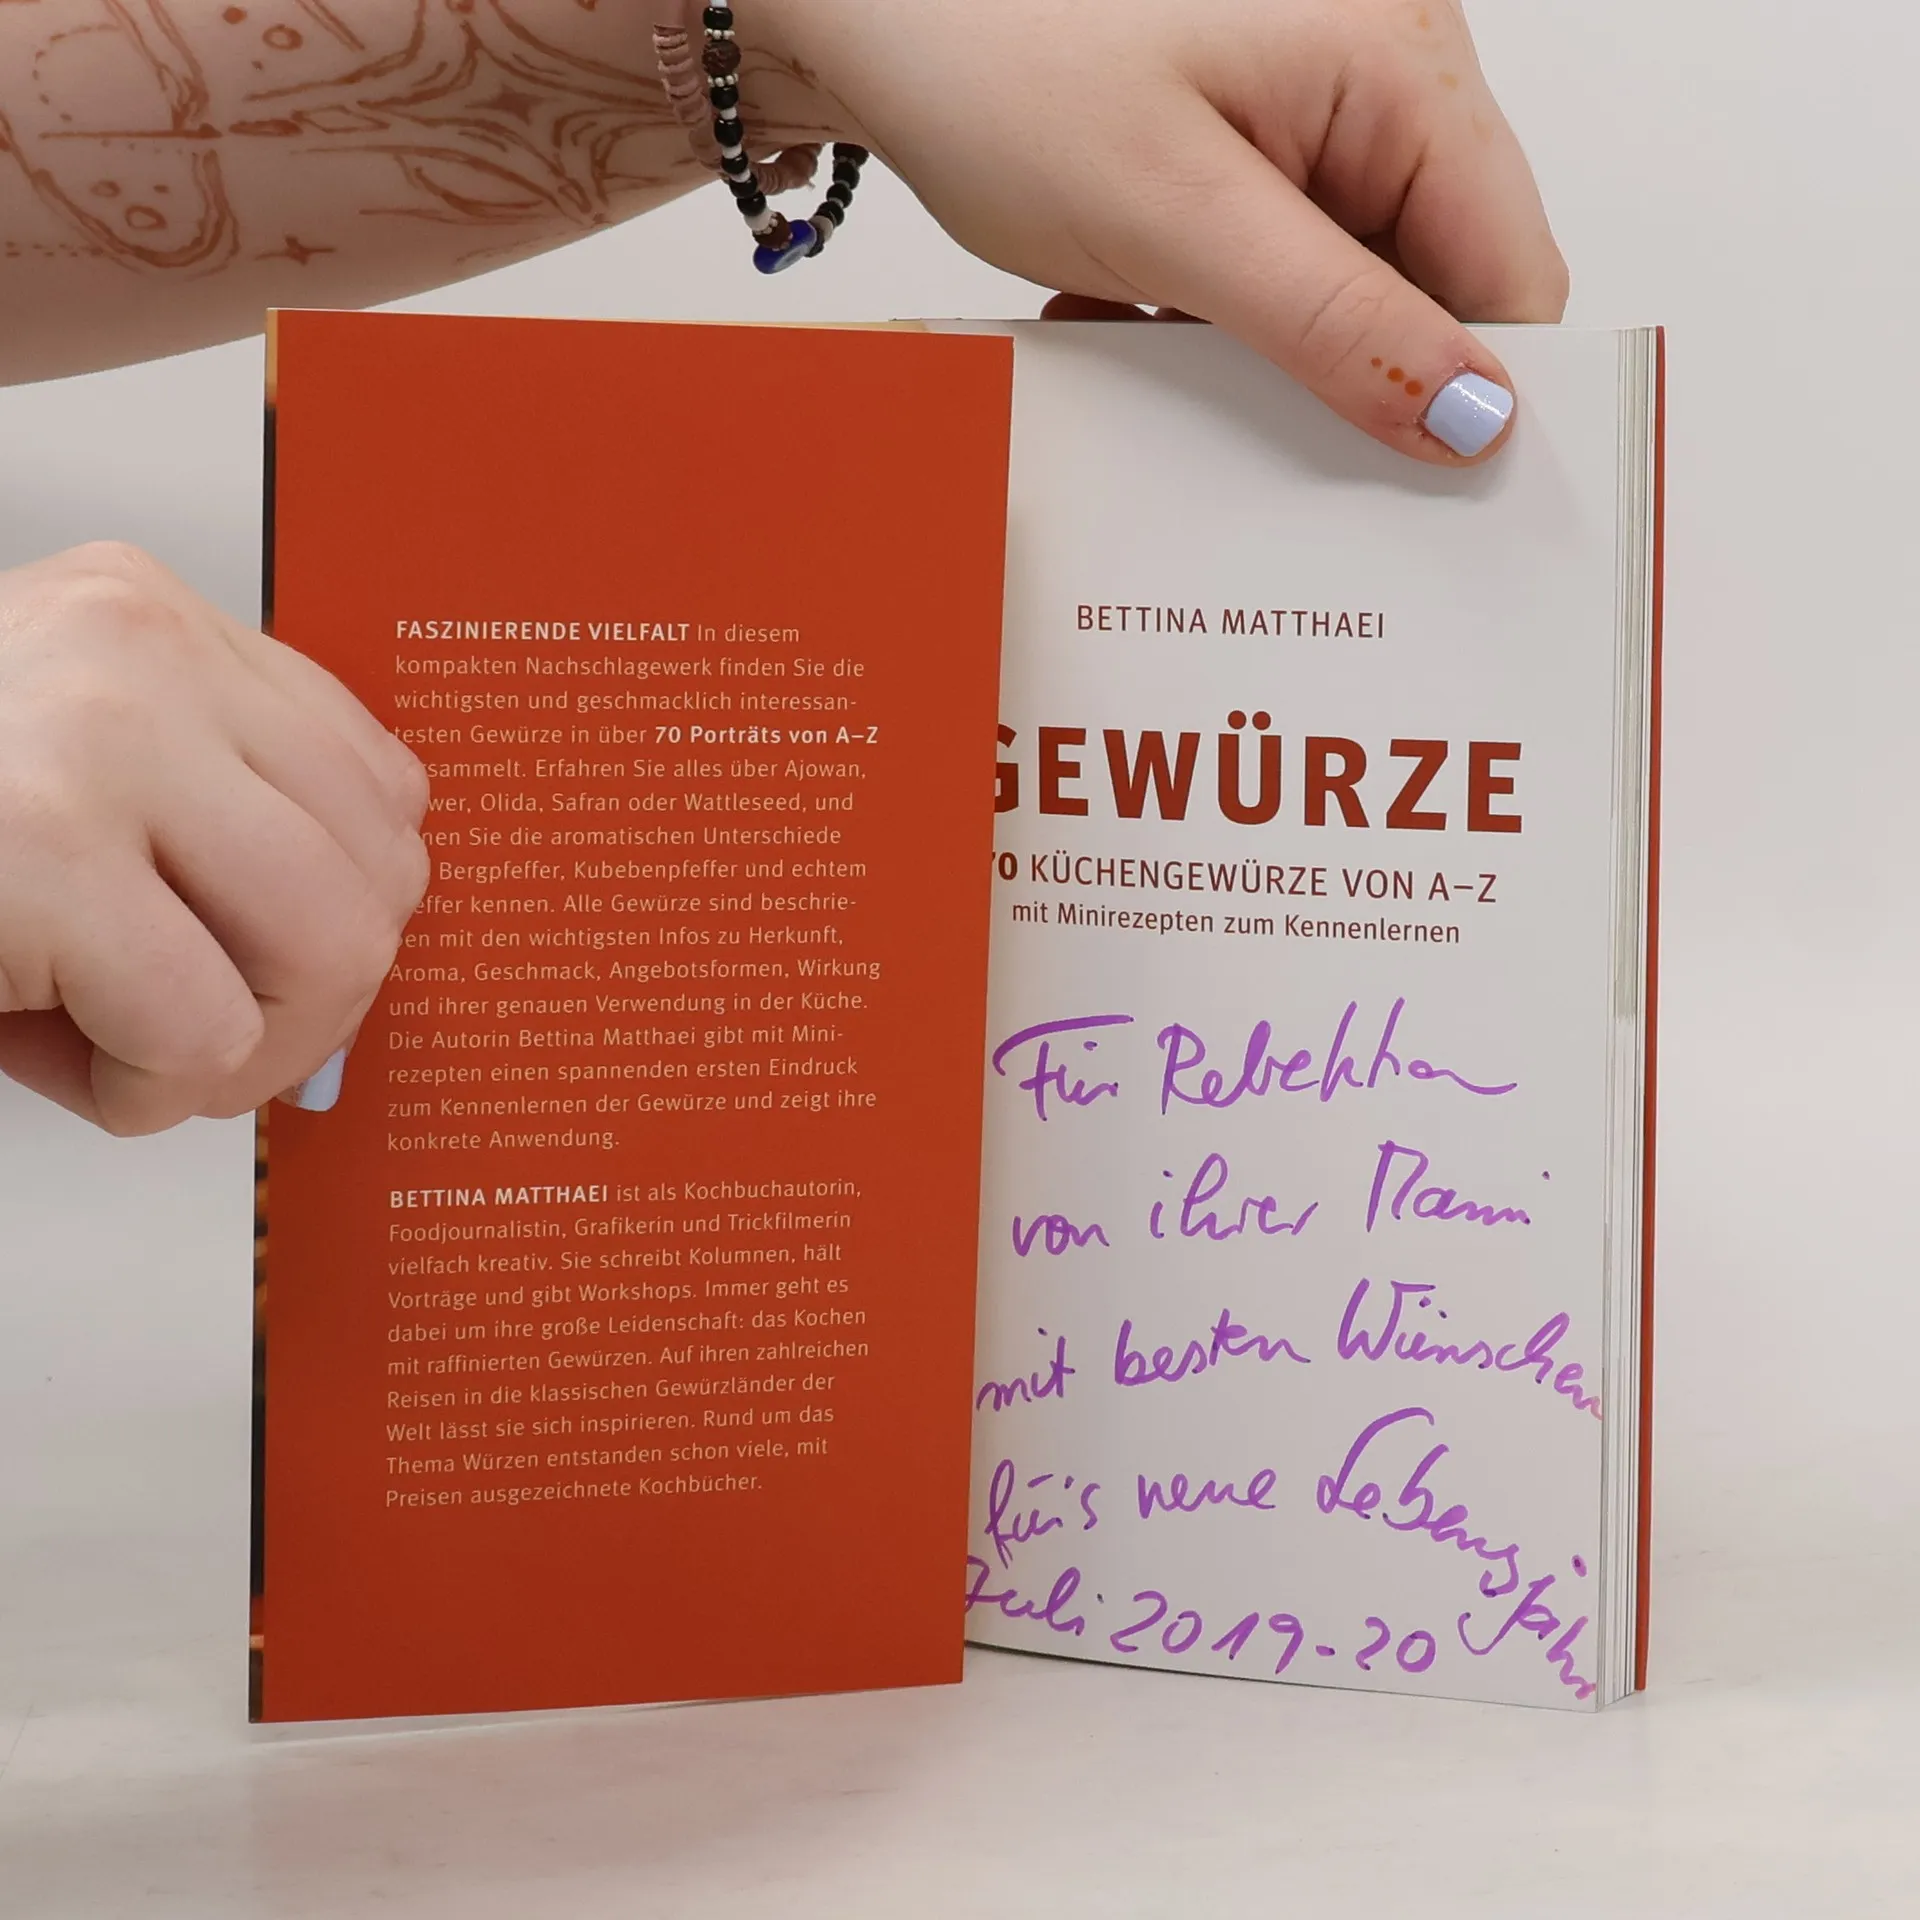 FASZINIERENDE VIELFALT In diesem
kompakten Nachschlagewerk finden Sie die
wichtigsten und geschmacklich interessan-
testen Gewürze in über 70 Porträts von A–Z
sammelt. Erfahren Sie alles über Ajowan,
wer, Olida, Safran oder Wattleseed, und
nen Sie die aromatischen Unterschiede
Bergpfeffer, Kubebenpfeffer und echtem
effer kennen. Alle Gewürze sind beschrie-
ben mit den wichtigsten Infos zu Herkunft,
Aroma, Geschmack, Angebotsformen, Wirkung
und ihrer genauen Verwendung in der Küche.
Die Autorin Bettina Matthaei gibt mit Mini-
rezepten einen spannenden ersten Eindruck
zum Kennenlernen der Gewürze und zeigt ihre
konkrete Anwendung.
BETTINA MATTHAEI ist als Kochbuchautorin,
Foodjournalistin, Grafikerin und Trickfilmerin
vielfach kreativ. Sie schreibt Kolumnen, hält
Vorträge und gibt Workshops. Immer geht es
dabei um ihre große Leidenschaft: das Kochen
mit raffinierten Gewürzen. Auf ihren zahlreichen
Reisen in die klassischen Gewürzländer der
Welt lässt sie sich inspirieren. Rund um das
Thema Würzen entstanden schon viele, mit
Preisen ausgezeichnete Kochbücher.
BETTINA MATTHAEI
GEWÜRZE
70 KÜCHENGEWÜRZE VON A–Z
mit Minirezepten zum Kennenlernen
Für Rebekka
von ihrer Mami
mit besten Wünschen
für's neue Lebensjahr
Juli 2019-20